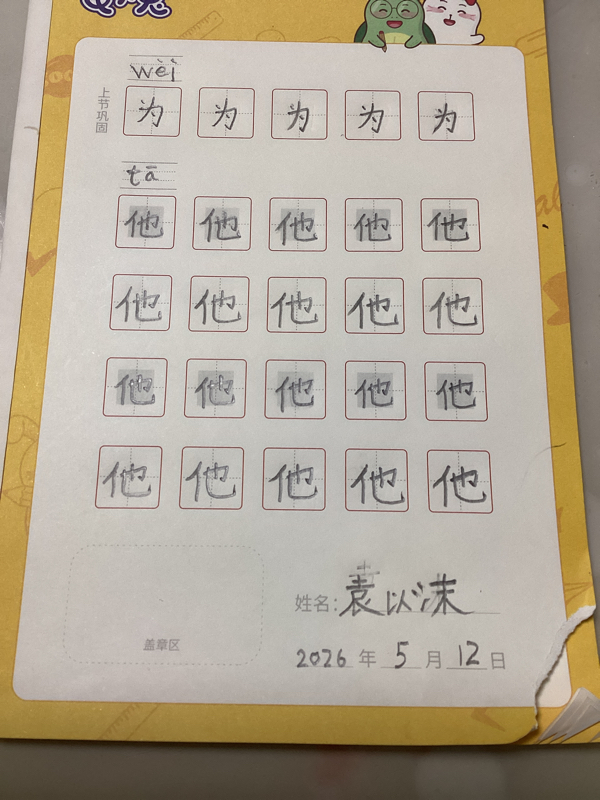 wèi
上节巩固
为 为 为 为 为
tā
他 他 他 他 他
他 他 他 他 他
他 他 他 他 他
他 他 他 他 他
盖章区
姓名: 袁以沫
2026 年 5 月 12 日